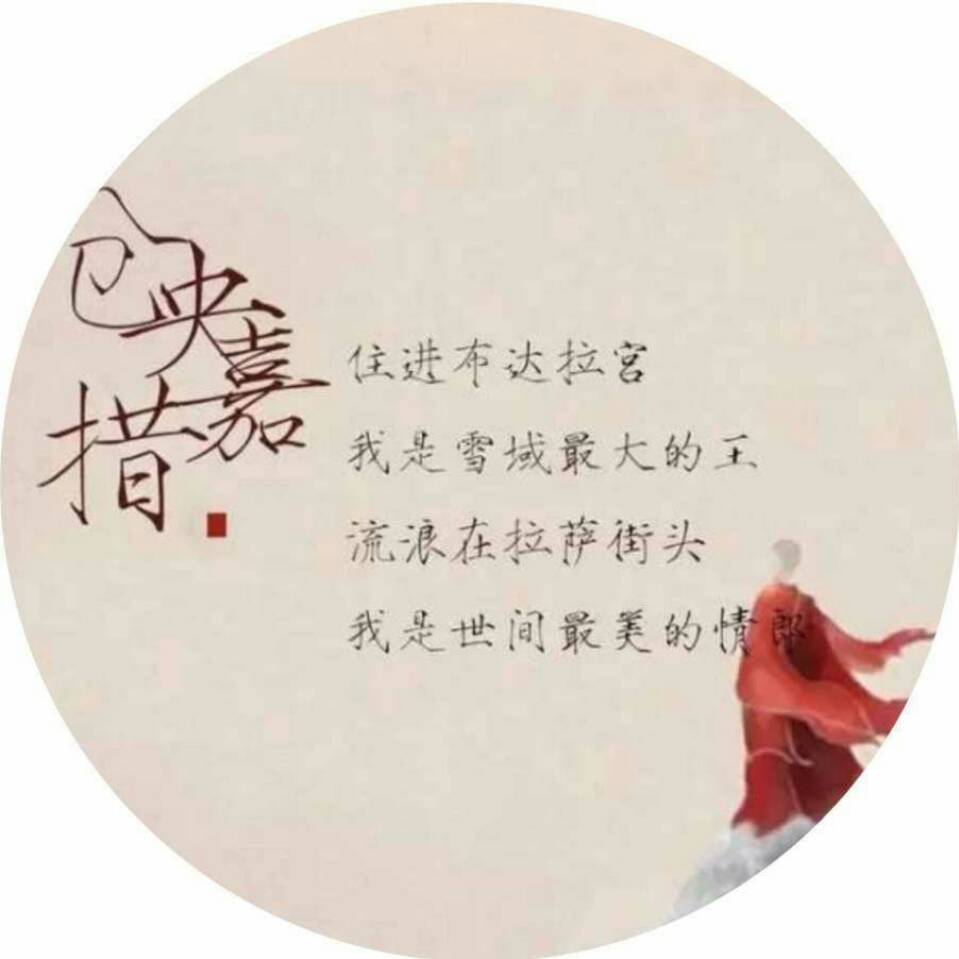 仓央嘉措
住进布达拉宫
我是雪域最大的王
流浪在拉萨街头
我是世间最美的情郎